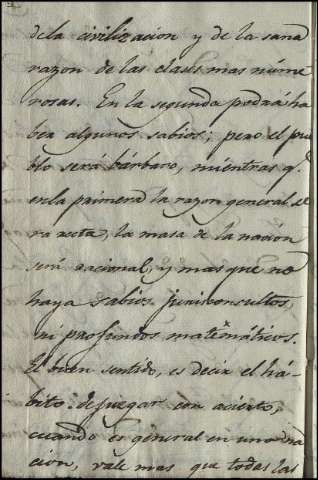 de la civilizacion y de la sana
razon de las clases mas nume
rosas. En la segunda podrá ha
ber algunos sabios; pero el pue
blo será bárbaro, miéntras q.
en la primera la razon general se
ra recta, la masa de la nacion
será racional, y mas que no
haya sabios jurisconsultos,
ni profundos matemáticos.
El buen sentido, es decir el há-
bito de juzgar con acierto,
cuando es general en una na
cion, vale mas que todas las